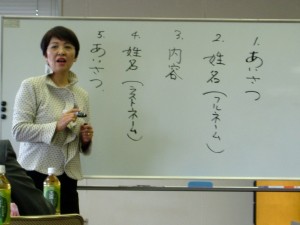 1. あいさつ
2. 姓名(フルネーム)
3. 内容
4. 姓名(ラストネーム)
5. あいさつ